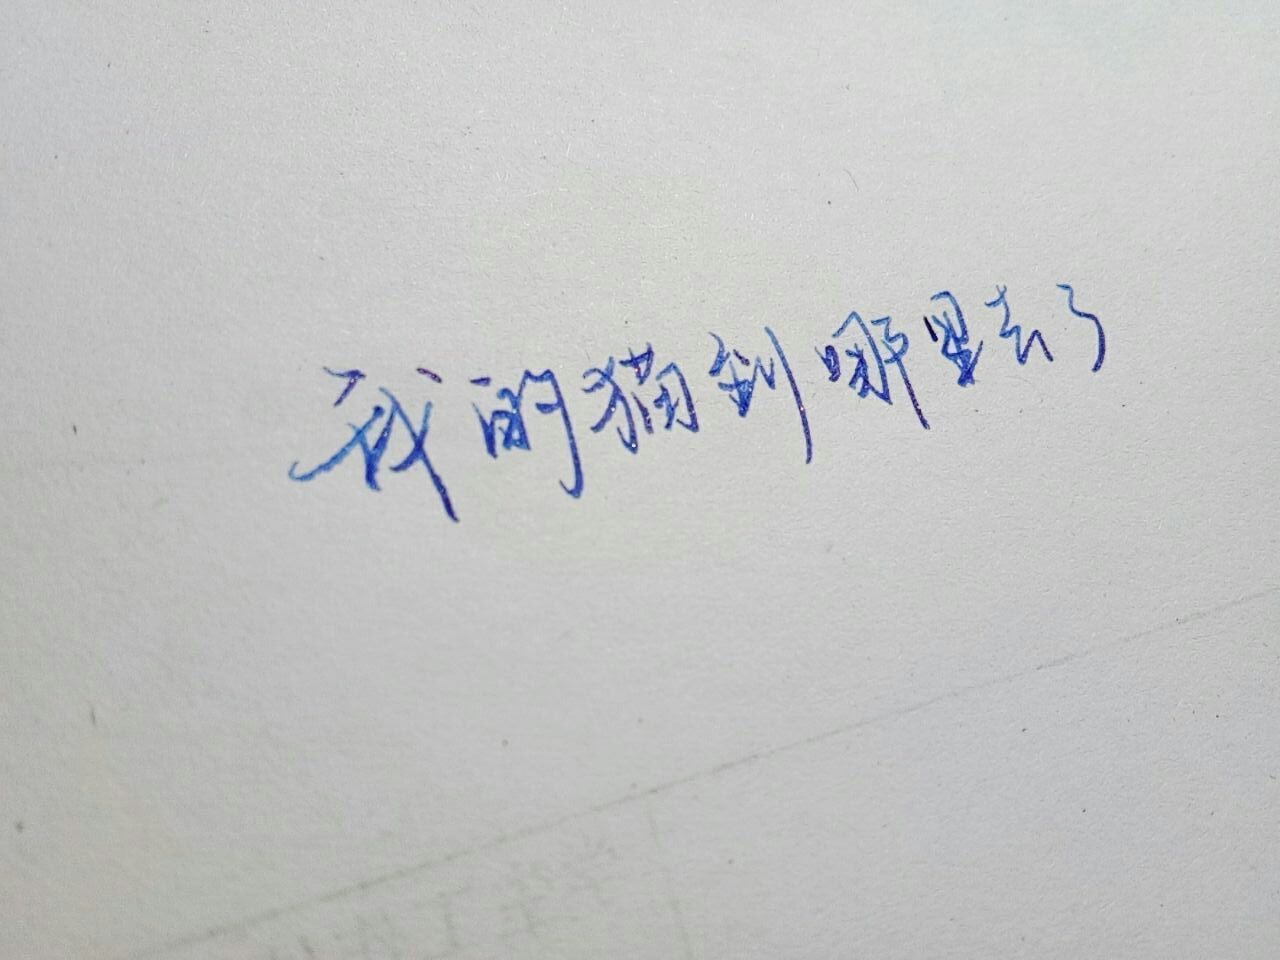 我的猫到哪里去了